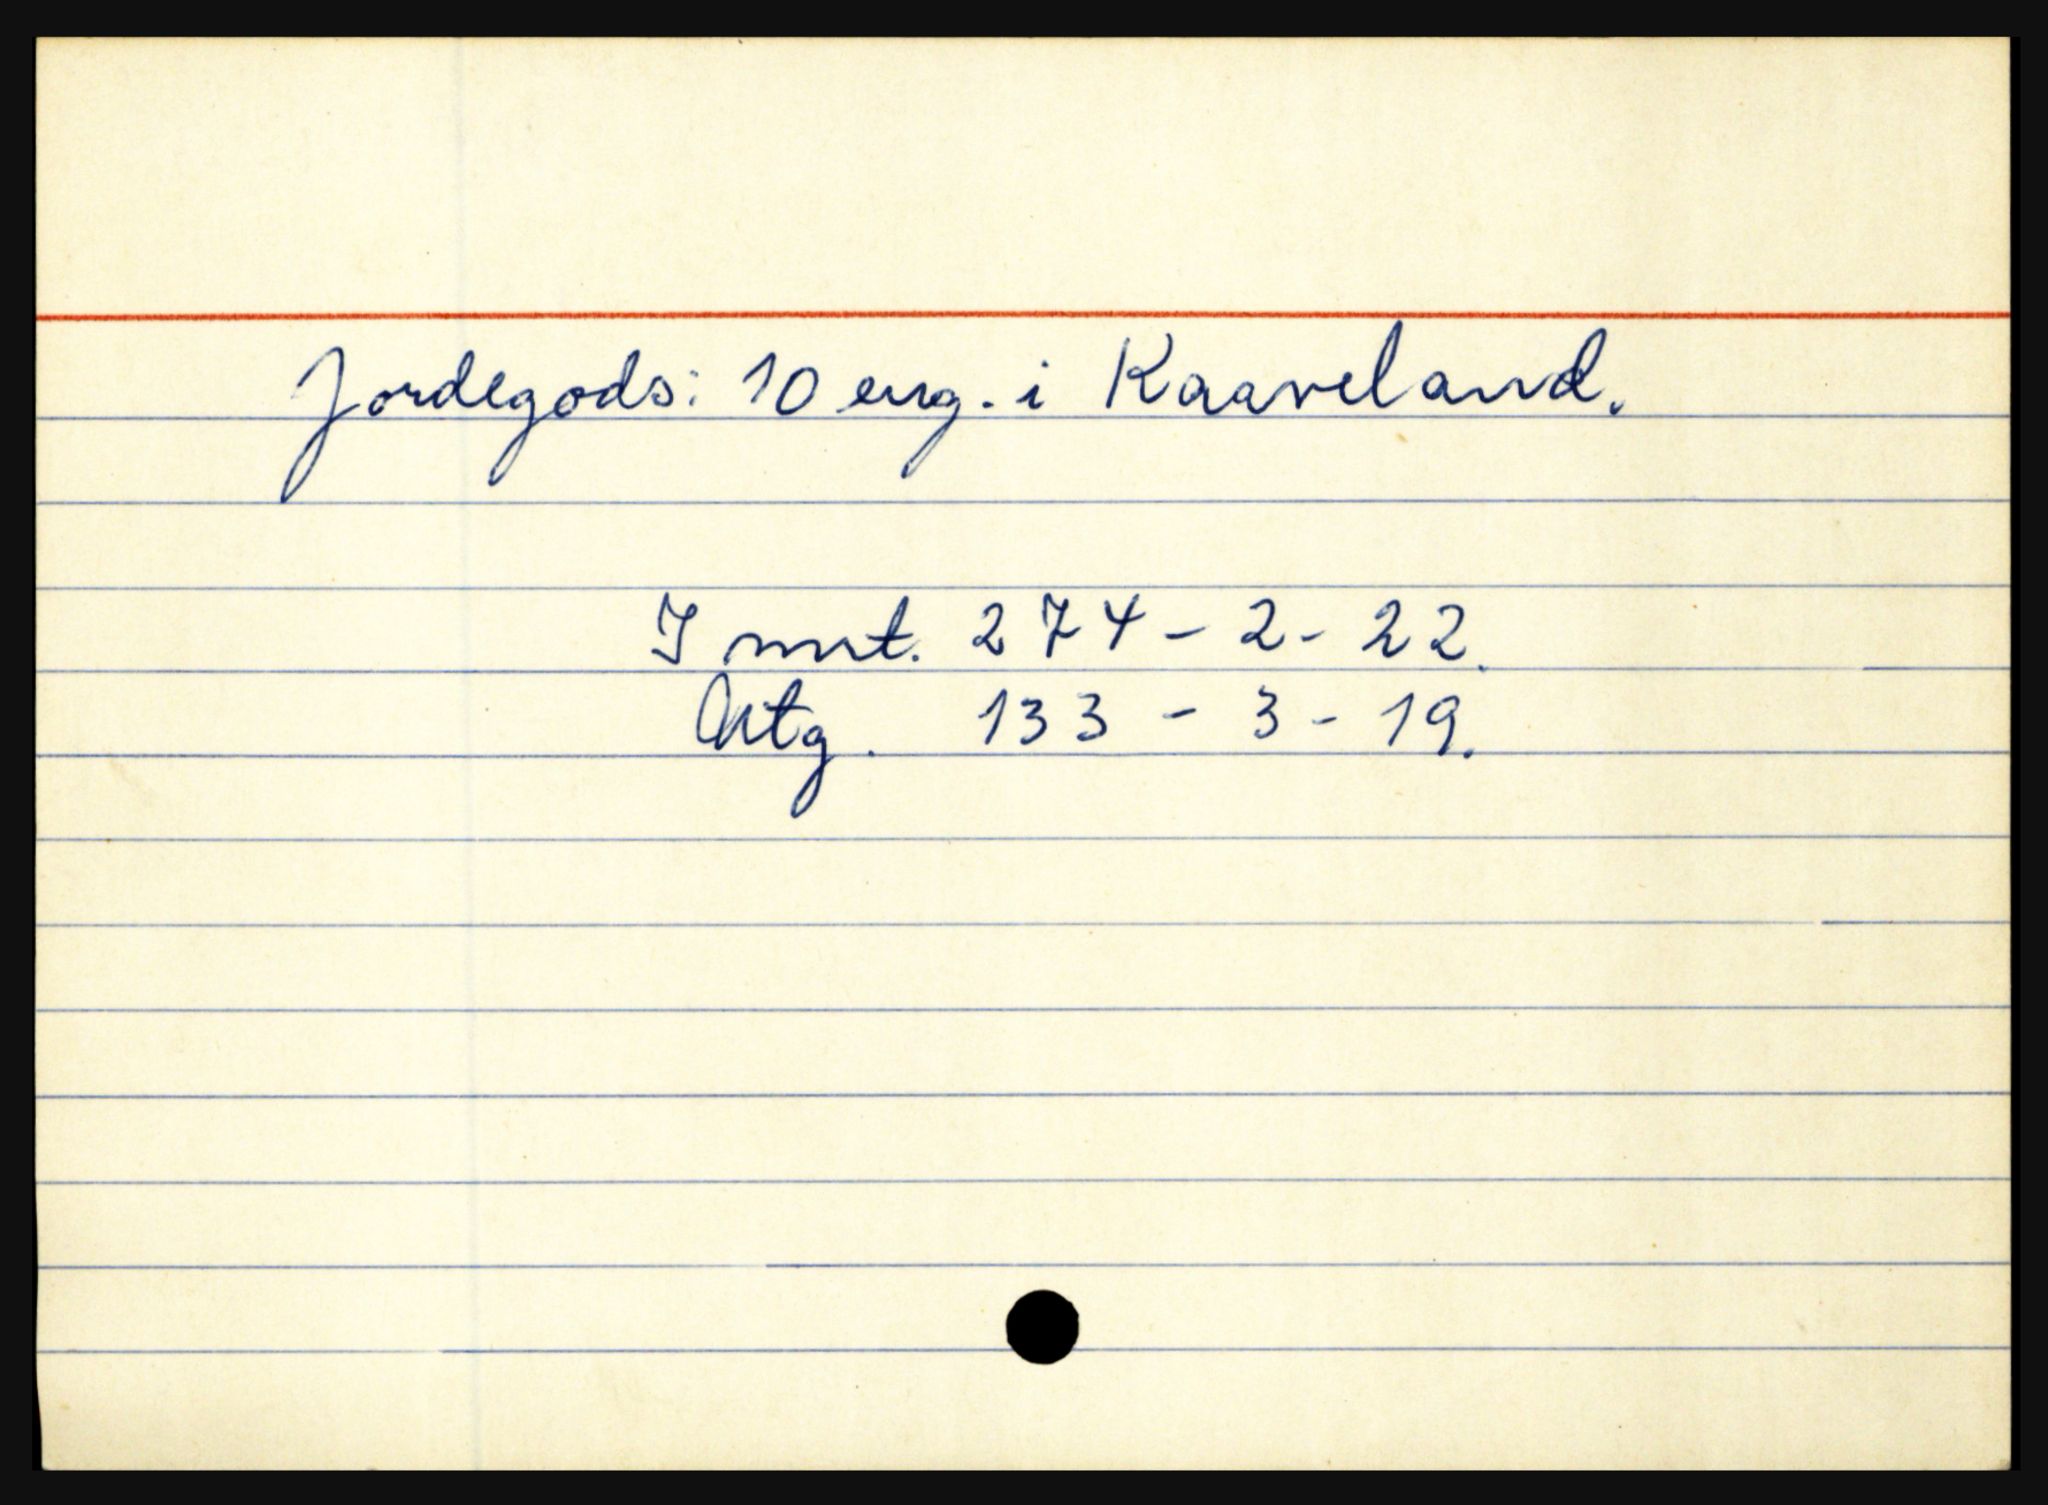 Jordegods: 10 eng. i Kaaveland.
I mut. 274 - 2 - 22.
Utg. 133 - 3 - 19.